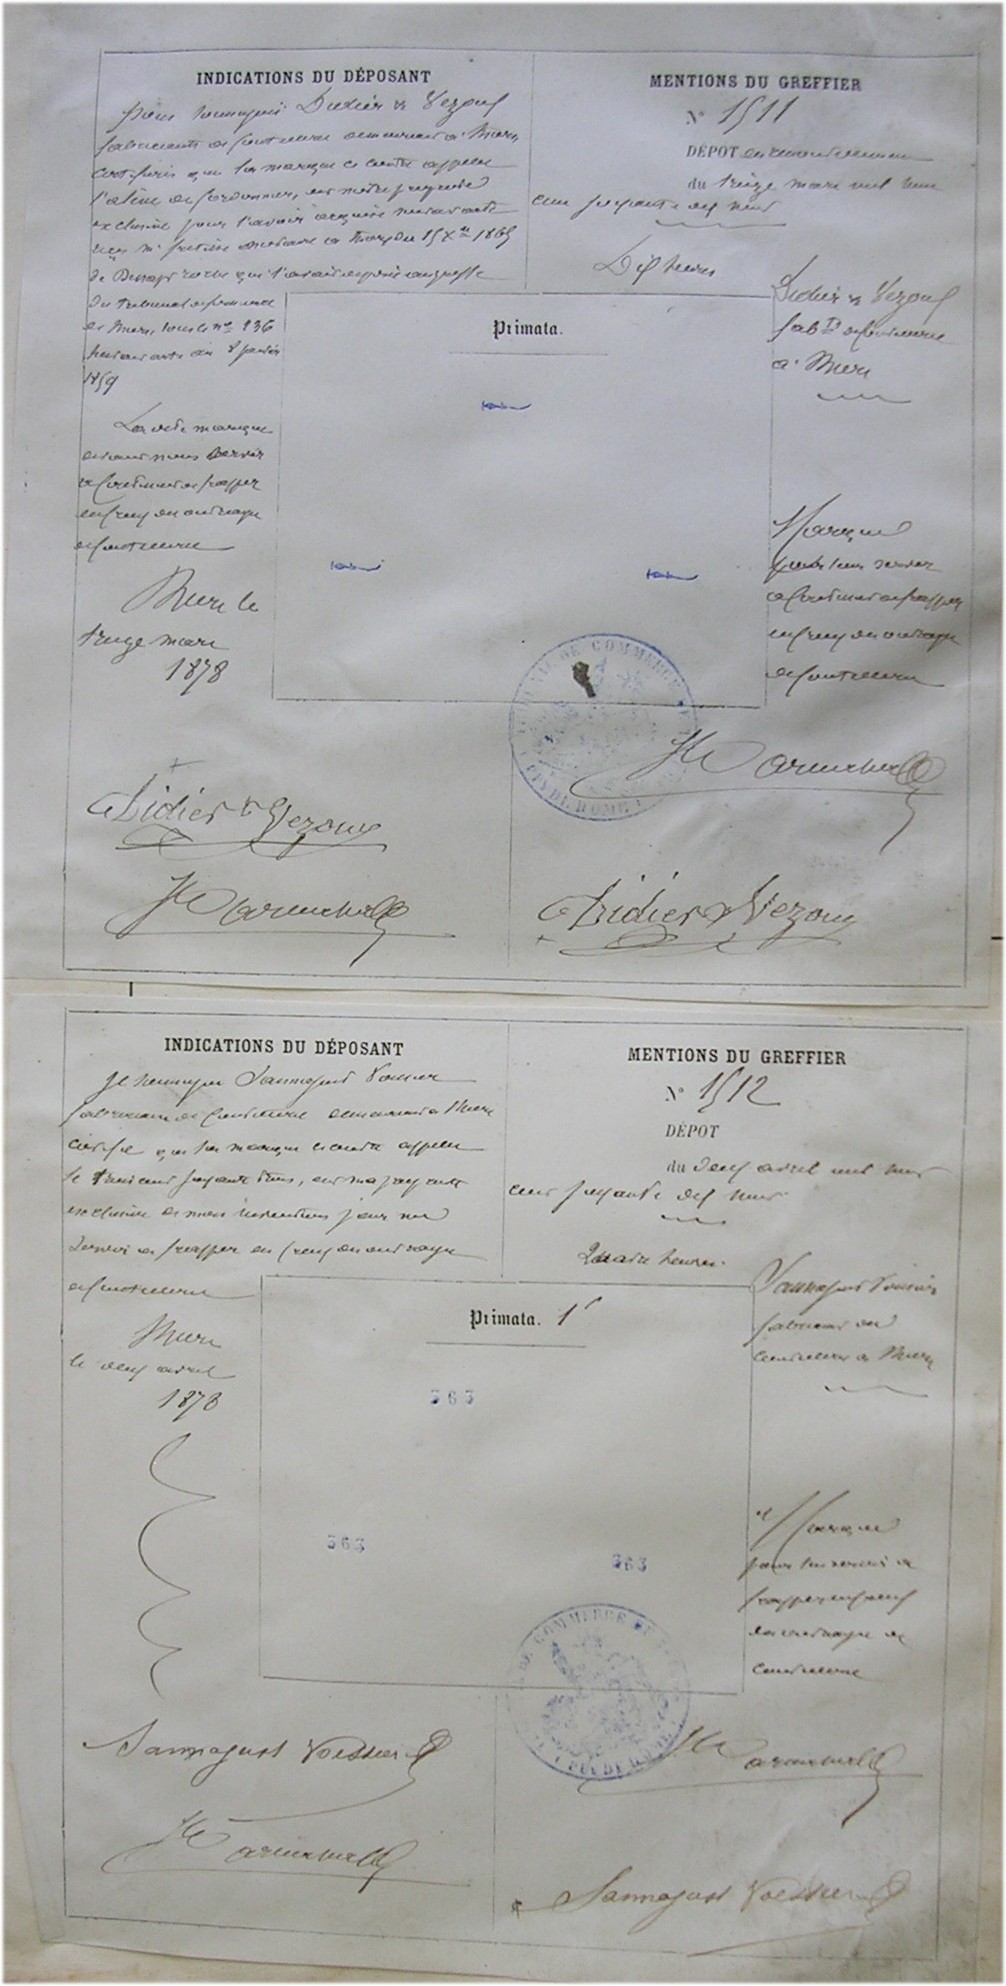 INDICATIONS DU DÉPOSANT
Nous soussignés Didier & Vezoux
fabricants de coutellerie demeurant à Thiers
certifions que la marque ci contre appelée
l'alène de cordonnier, est notre propriété
exclusive pour l'avoir acquise suivant acte
reçu Me notaire à Thiers du 15 Xbre 1869
de qui l'avait déposée au greffe
du tribunal de commerce
de Thiers, sous le no 236
suivant acte du 8 janvier
1859
La dite marque
devant nous servir
à continuer de frapper
en creux des ouvrages
de coutellerie
Thiers le
treize mars
1878
Didier & Vezoux
MENTIONS DU GREFFIER
No 1511
DÉPOT en renouvellement
du treize mars mil huit
cent soixante dix huit
Dix heures
Didier & Vezoux
fabts de coutellerie
à Thiers
Primata.
Marque
pour leur servir
à continuer de frapper
en creux des ouvrages
de coutellerie
TRIBUNAL DE COMMERCE
PUY DE DOME
Didier & Vezoux
INDICATIONS DU DÉPOSANT
Je soussigné Sannajust Voissier
fabricant de coutellerie demeurant à Thiers
certifie que la marque ci contre appelée
le trois cent soixante trois, est ma propriété
exclusive de mon invention pour me
servir à frapper en creux des ouvrages
de coutellerie
Thiers
le deux avril
1878
Sannajust Voissier
MENTIONS DU GREFFIER
No 1512
DÉPOT
du deux avril mil huit
cent soixante dix huit
Quatre heures
Sannajust Voissier
fabricant de
coutellerie à Thiers
Primata. 1r
363
363
363
Marque
pour lui servir à
frapper en creux
des ouvrages de
coutellerie
DE COMMERCE
PUY DE DOME
Sannajust Voissier